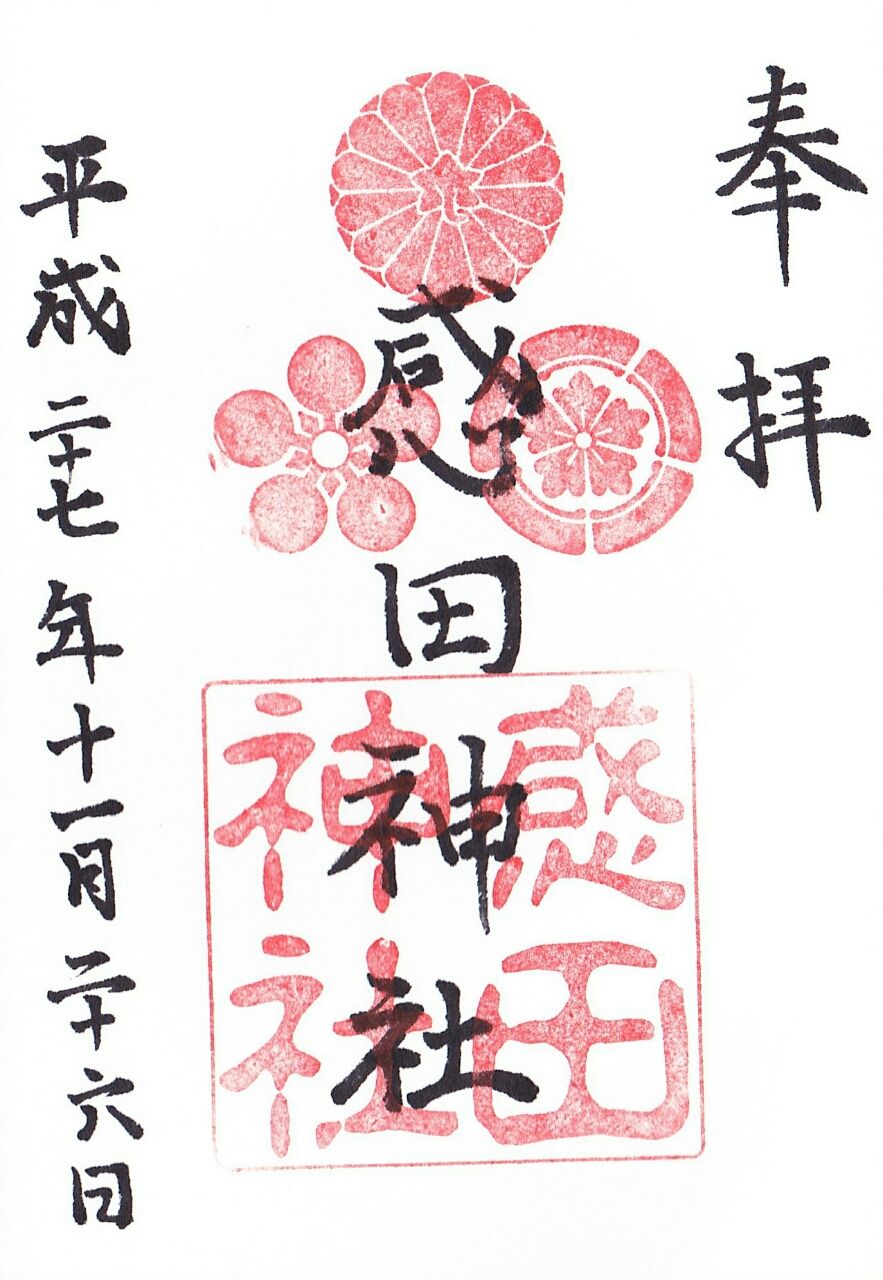 奉拝
感田神社
感田神社
平成二十七年十一月二十六日